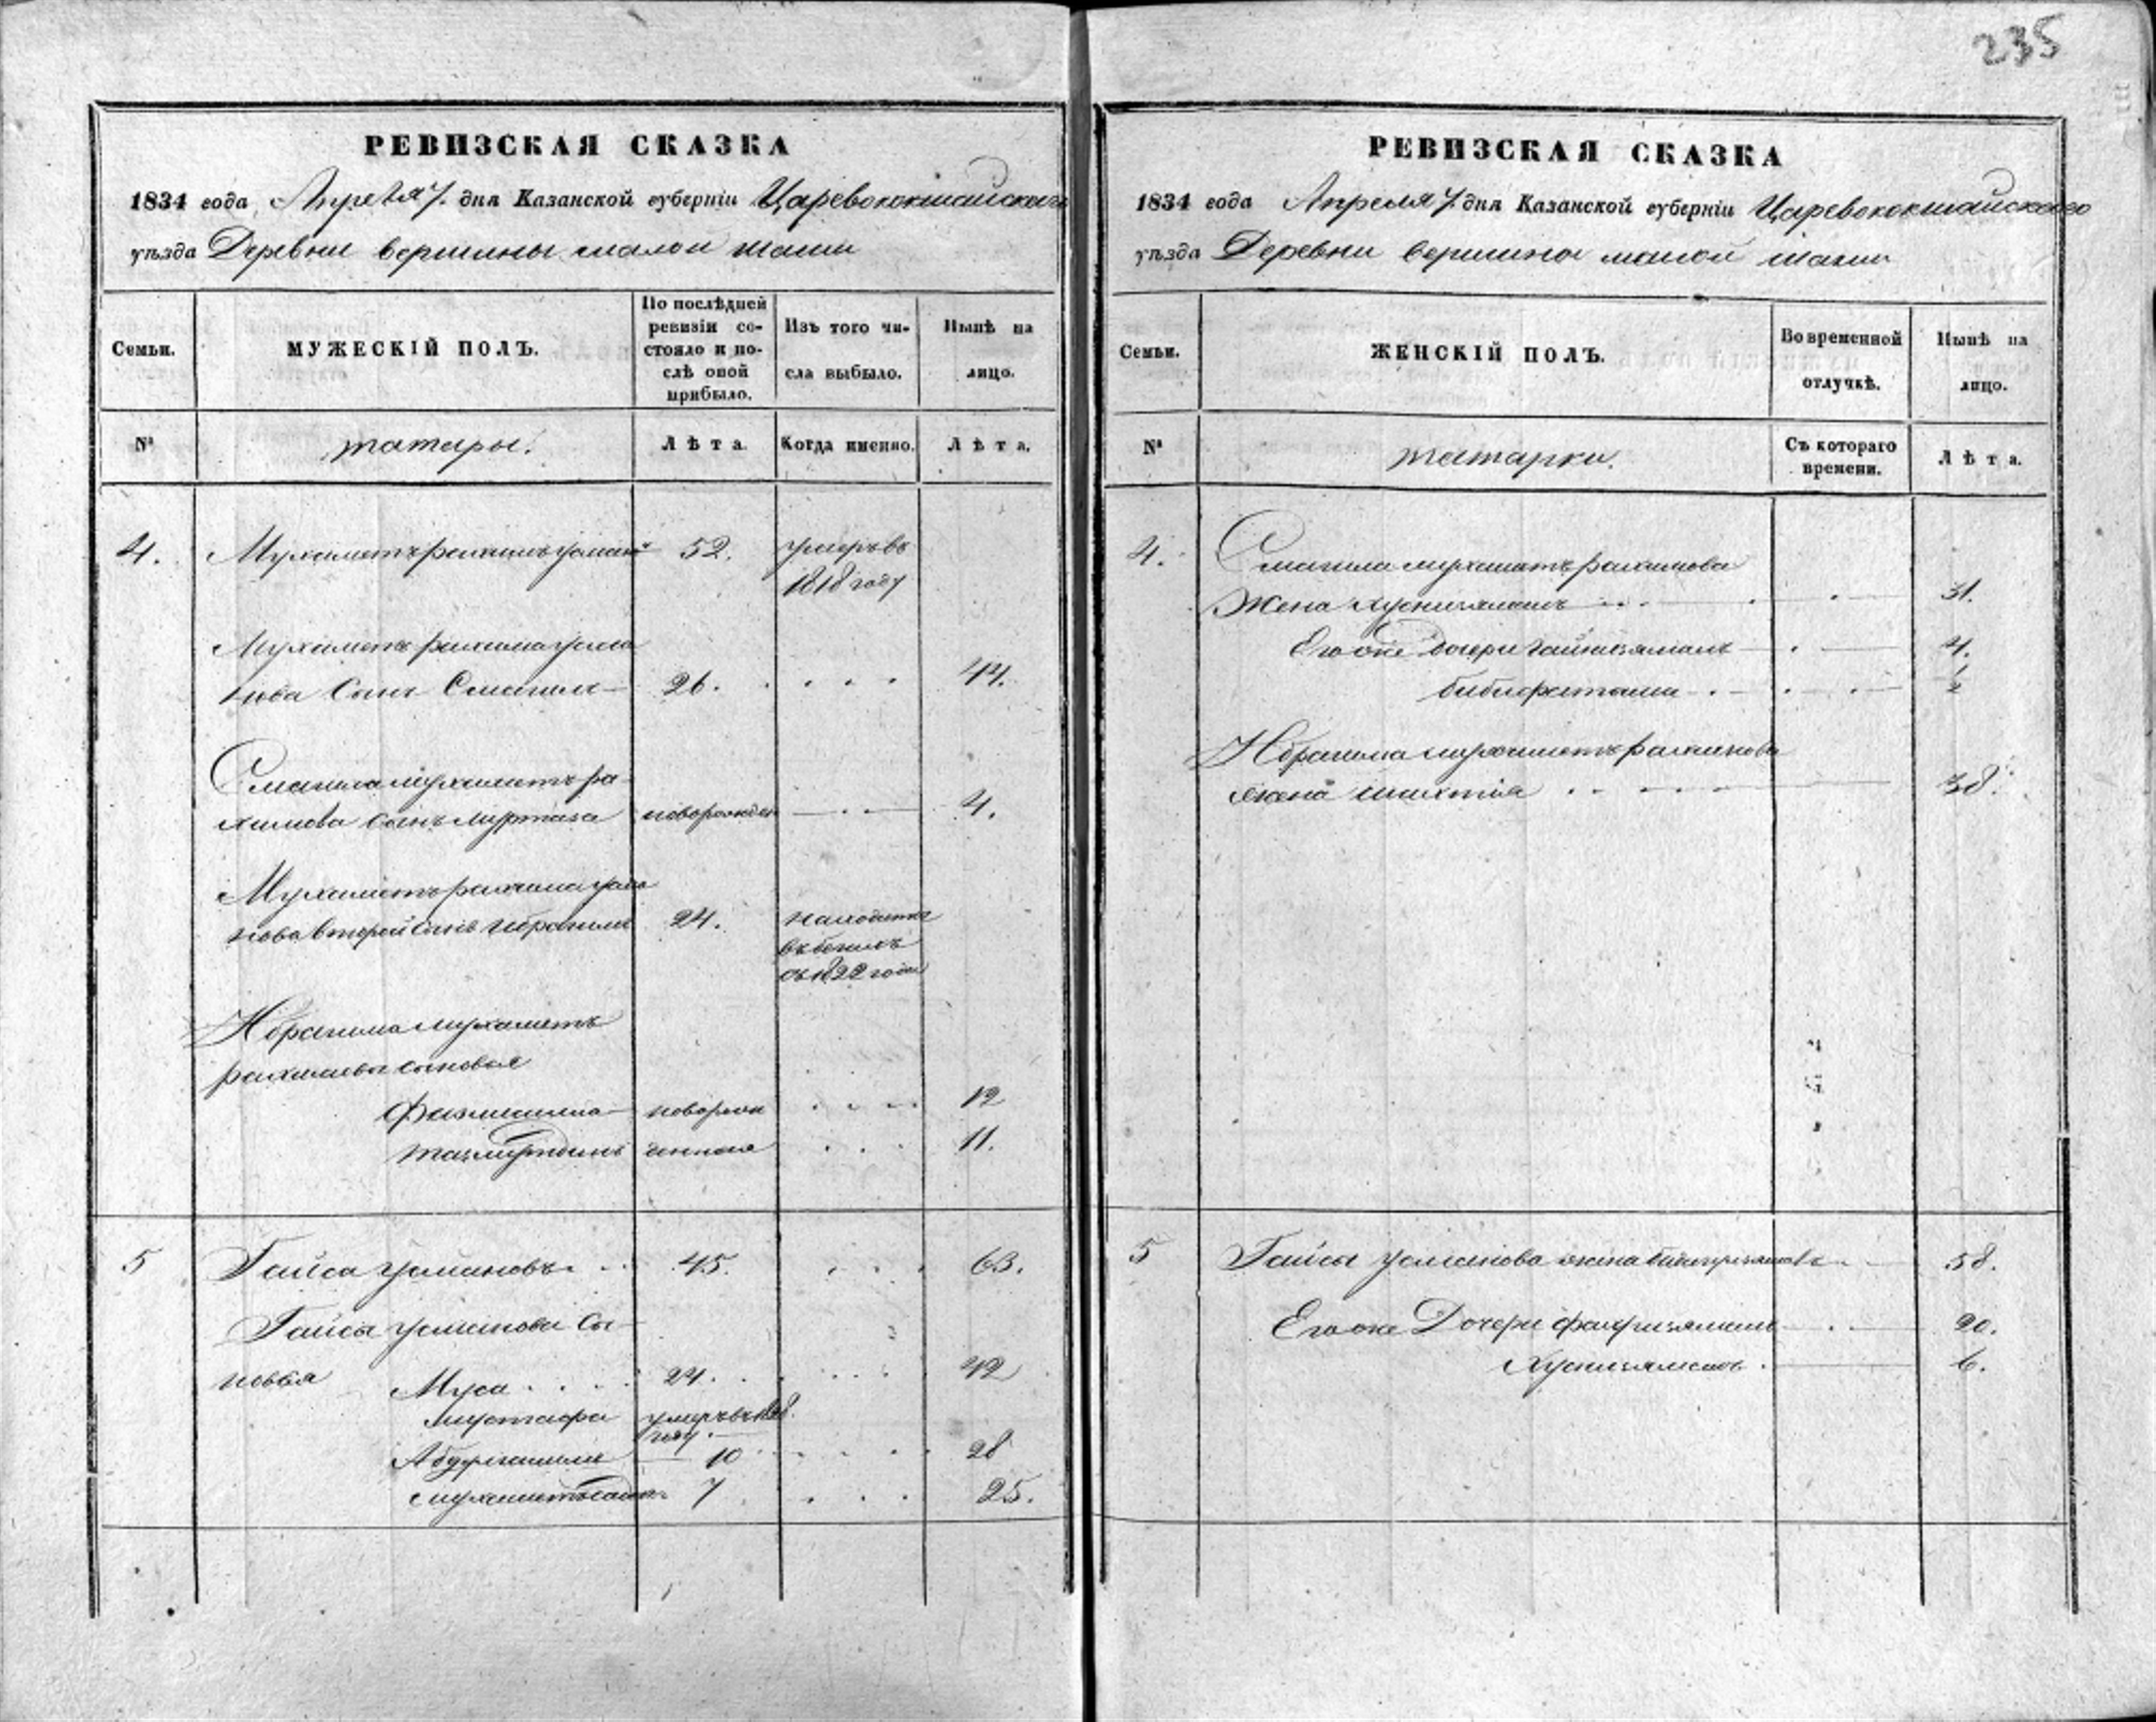 235
РЕВИЗСКАЯ СКАЗКА
1834 года Апреля 7. дня Казанской губерніи Царевококшайскаго
уѣзда Деревни вершины малой шаши
Семьи. МУЖЕСКІЙ ПОЛЪ. По послѣдней ревизіи состояло и послѣ оной прибыло. Изъ того числа выбыло. Нынѣ на лицо.
№ татары. Лѣта. Когда именно. Лѣта.
4. Мухаметъ рахимъ усманов 52. умеръ въ
1818 году
Мухаметъ рахима усма
нова Сынъ Смагилъ 26. 44.
Смагила мухаметъ ра-
химова сынъ муртаза новорожден 4.
Мухаметъ рахима усма
нова второй сынъ ибрагимъ 24. находится
въ бегахъ
съ 1822 года
Ибрагима мухаметъ
рахимова сыновья
новорож 12
денные 11.
5 Гайса усмановъ 45. 63.
Гайсы усманова Сы-
новья Муса 24. 42
мустафа умеръ въ
году
10 28
7 25.
РЕВИЗСКАЯ СКАЗКА
1834 года Апреля 7. дня Казанской губерніи Царевококшайскаго
уѣзда Деревни вершины малой шаши
Семьи. ЖЕНСКІЙ ПОЛЪ. Во временной отлучкѣ. Нынѣ на лицо.
№ татарки. Съ котораго времени. Лѣта.
4. Смагила мухаметъ рахимова
Жена хуснизямалъ 31.
Его же дочери 4.
1/2
Ибрагима мухаметъ рахимова
жена 38.
5 Гайсы усманова жена 58.
Его же Дочери фахризямалъ 20.
Хуснизямалъ 6.